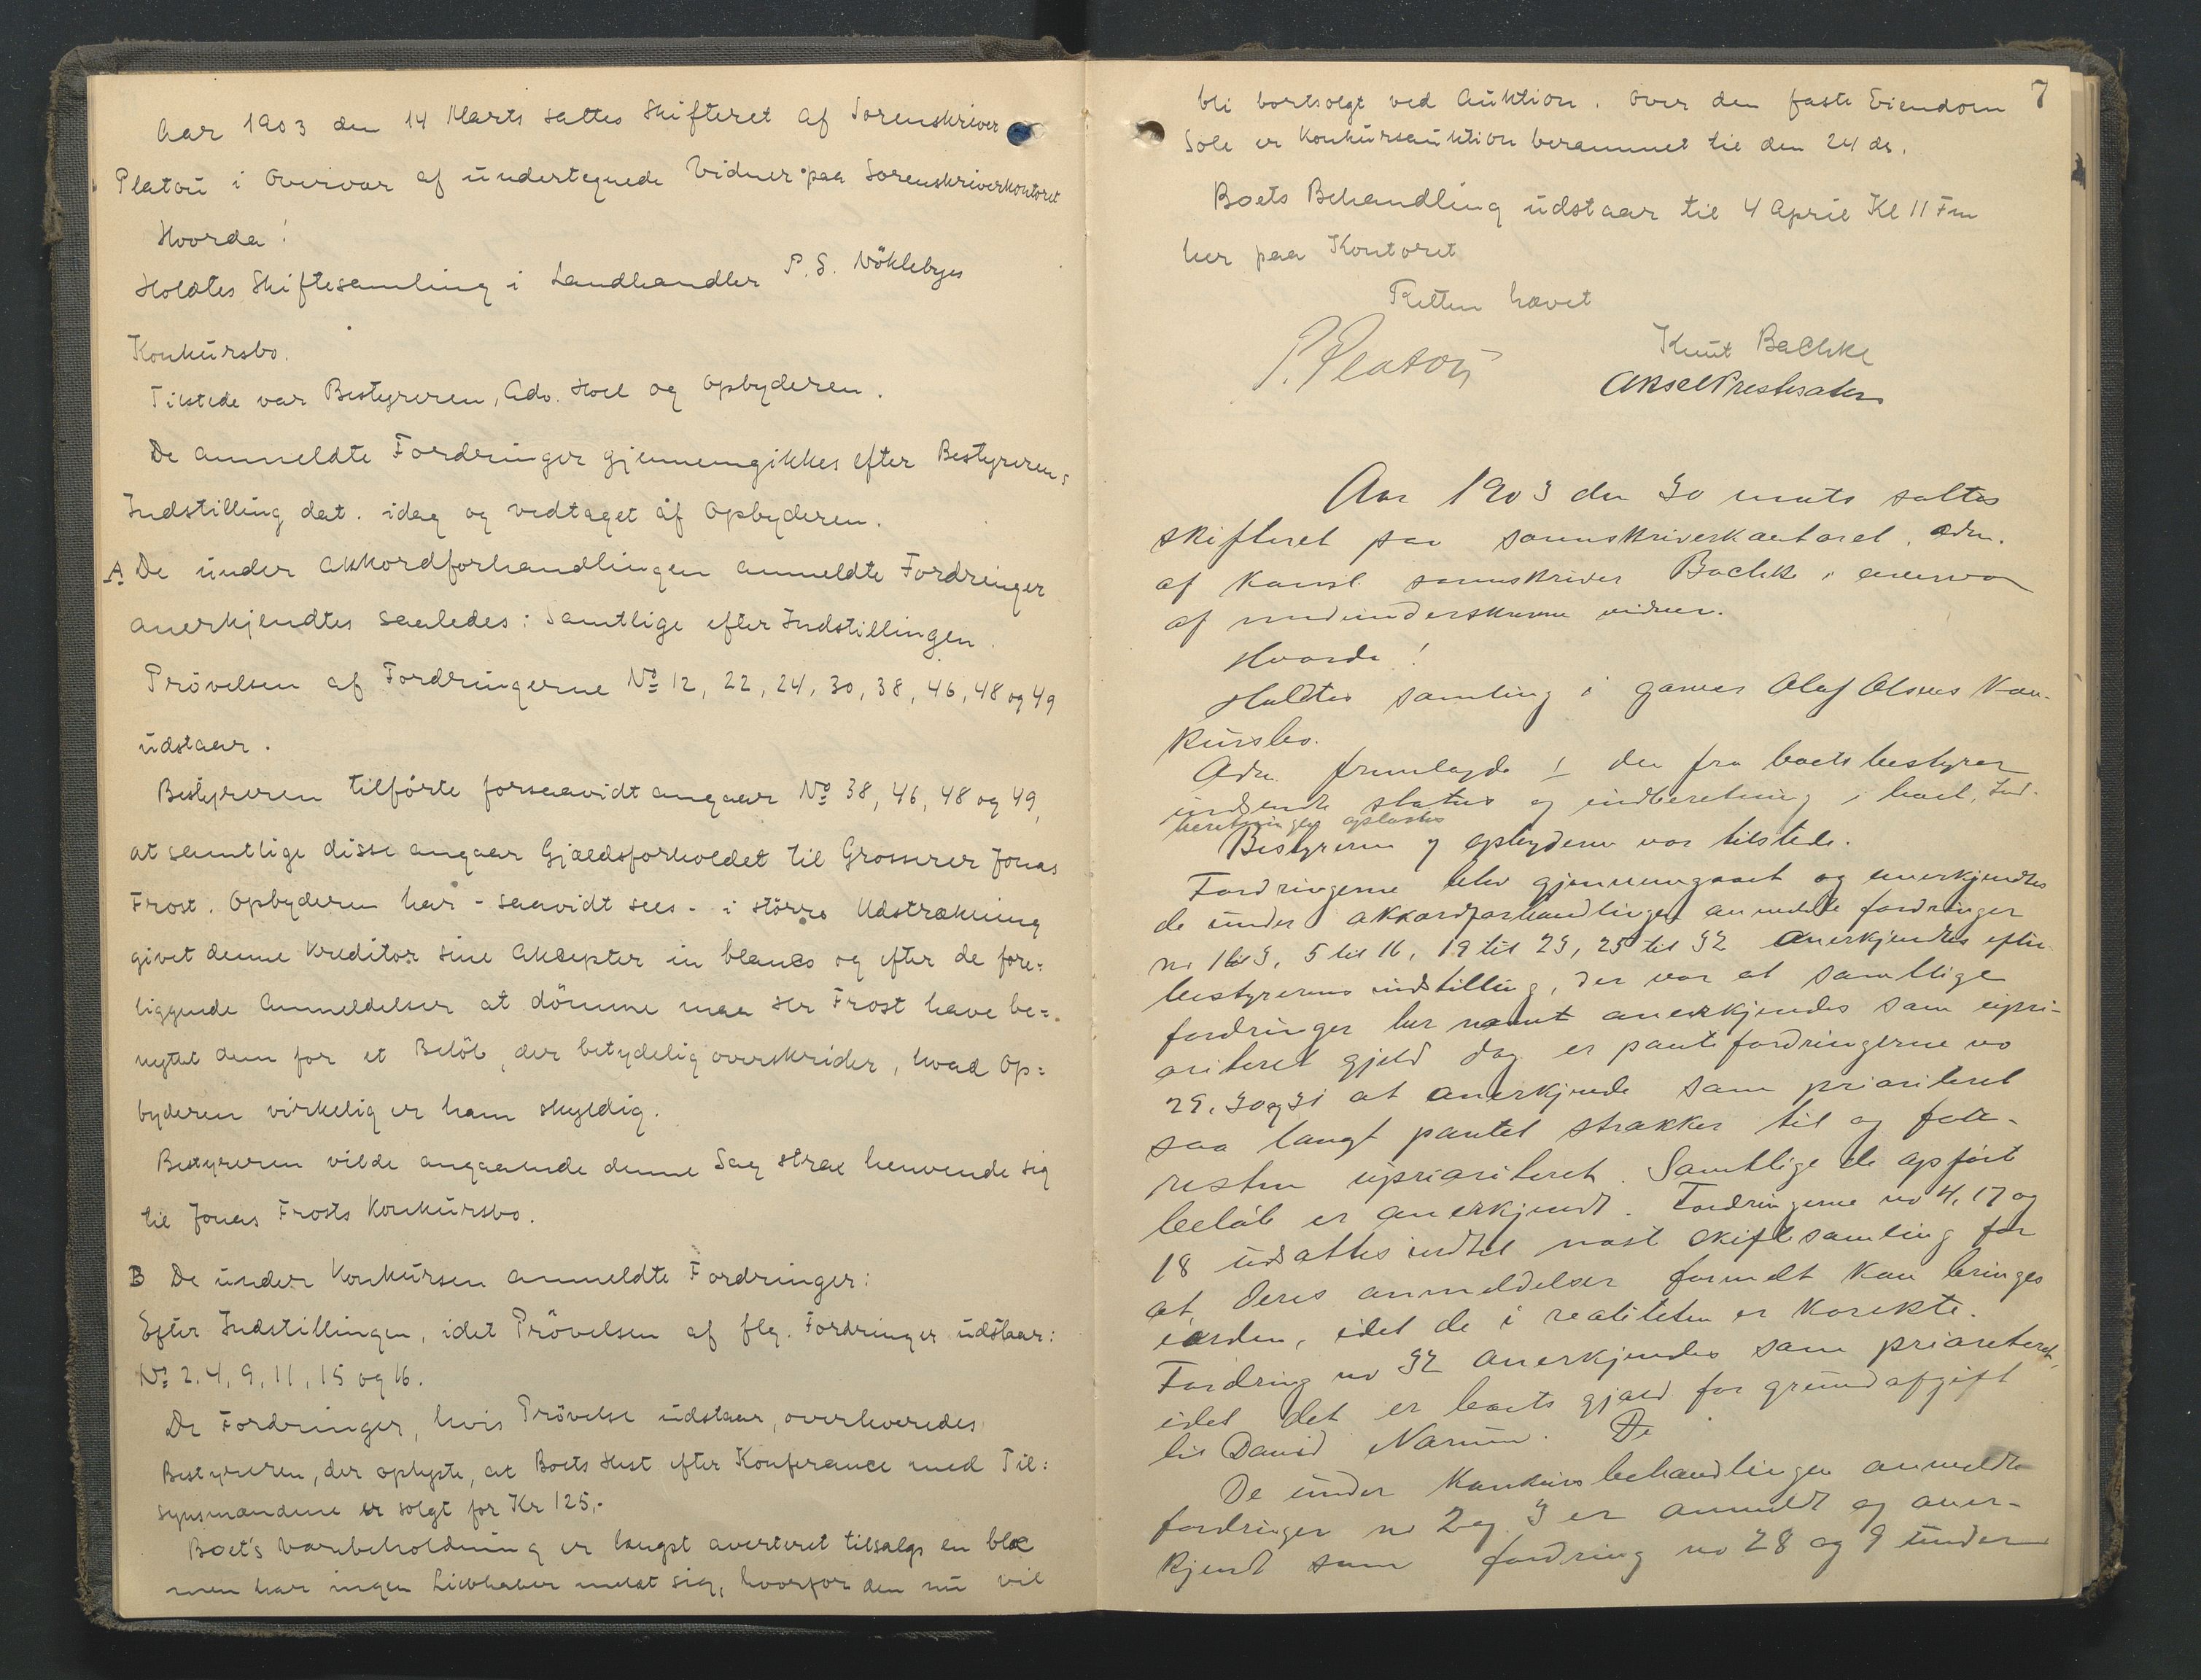 Aar 1903 den 14 Marts sattes Skifteret af Sorenskriver
Platou i Overvær af undertegnede Vidner paa Sorenskriverkontoret
Hvorda!
Holdtes Skiftesamling i Landhandler P. S. Nöklebyes
Konkursbo.
Tilstede var Bestyreren, Adv. Hoel og Opbyderen.
De anmeldte Fordringer gjennemgikkes efter Bestyrerens
Indstilling dat. idag og vedtaget af Opbyderen.
A De under Akkordforhandlingen anmeldte Fordringer
anerkjendtes saaledes: Samtlige efter Indstillingen.
Prövelsen af Fordringerne No 12, 22, 24, 30, 38, 46, 48 og 49
udstaar.
Bestyreren tilförte forsaavidt angaar No 38, 46, 48 og 49,
at samtlige disse angaar Gjældsforholdet til Grosserer Jonas
Frost. Opbyderen har - saavidt sees - i större Udstrækning
givet denne Kreditor sine Akcepter in blanco og efter de fore=
liggende Anmeldelser at dömme maa Hr Frost have be=
nyttet dem for et Belöb, der betydelig overskrider, hvad Op=
byderen virkelig er ham skyldig.
Bestyreren vilde angaaende denne Sag strax henvende sig
til Jonas Frosts Konkursbo.
B De under Konkursen anmeldte Fordringer:
Efter Indstillingen, idet Prövelsen af flg. Fordringer udstaar:
No 2, 4, 9, 11, 15 og 16.
De Fordringer, hvis Prövelse udstaar, overleveredes
Bestyreren, der oplyste, at Boets Hest efter Konferance med Til=
synsmændene er solgt for Kr 125,-
Boet's Varebeholdning er længst averteret tilsalgs en bloc
men har ingen Liebhaber meldt sig, hvorfor den nu vil
7
bli bortsolgt ved Auktion. Over den faste Eiendom
Sole er Konkursauktion berammet til den 24 ds.
Boets Behandling udstaar til 4 April Kl 11 Fm
her paa Kontoret
Retten hævet
P. Platou
Knut Bachke
Aksel Prestesater
Aar 1903 den 30 marts sattes
skifteret paa sorenskriverkontoret, adm.
af konst. sorenskriver Bachke i overvær
af medunderskrevne vidner.
Hvorda!
Holdtes samling i garver Olaf Olsens kon-
kursbo.
Adm. fremlagde 1 den fra boets bestyrer
indsendte status og indberetning i boet. Ind-
beretningen oplæstes
Bestyreren og opbyderen var tilstede.
Fordringerne blev gjennemgaaet og anerkjendtes
de under akkordforhandlingen anmeldte fordringer
no 1 til 3, 5 til 16, 19 til 23, 25 til 32 anerkjendtes efter
bestyrerens indstilling, der var at samtlige
fordringer her nævnt anerkjendes som upri-
oriteret gjeld dog er pantefordringerne no
29, 30 og 31 at anerkjende som prioriteret
saa langt pantet strækker til og for
resten uprioriteret. Samtlige de opført
beløb er anerkjendt. Fordringerne no 4, 17 og
18 udsattes indtil næst skiftesamling for
at deres anmeldelser formelt kan bringes
iorden, idet de i realiteten er korekte.
Fordring no 32 anerkjendes som prioriteret,
idet det er boets gjæld for grundafgift
til David Narum. De
De under konkursbehandlingen anmeldte
fordringer no 2 og 3 er anmeldt og aner-
kjendt som fordring no 28 og 9 under